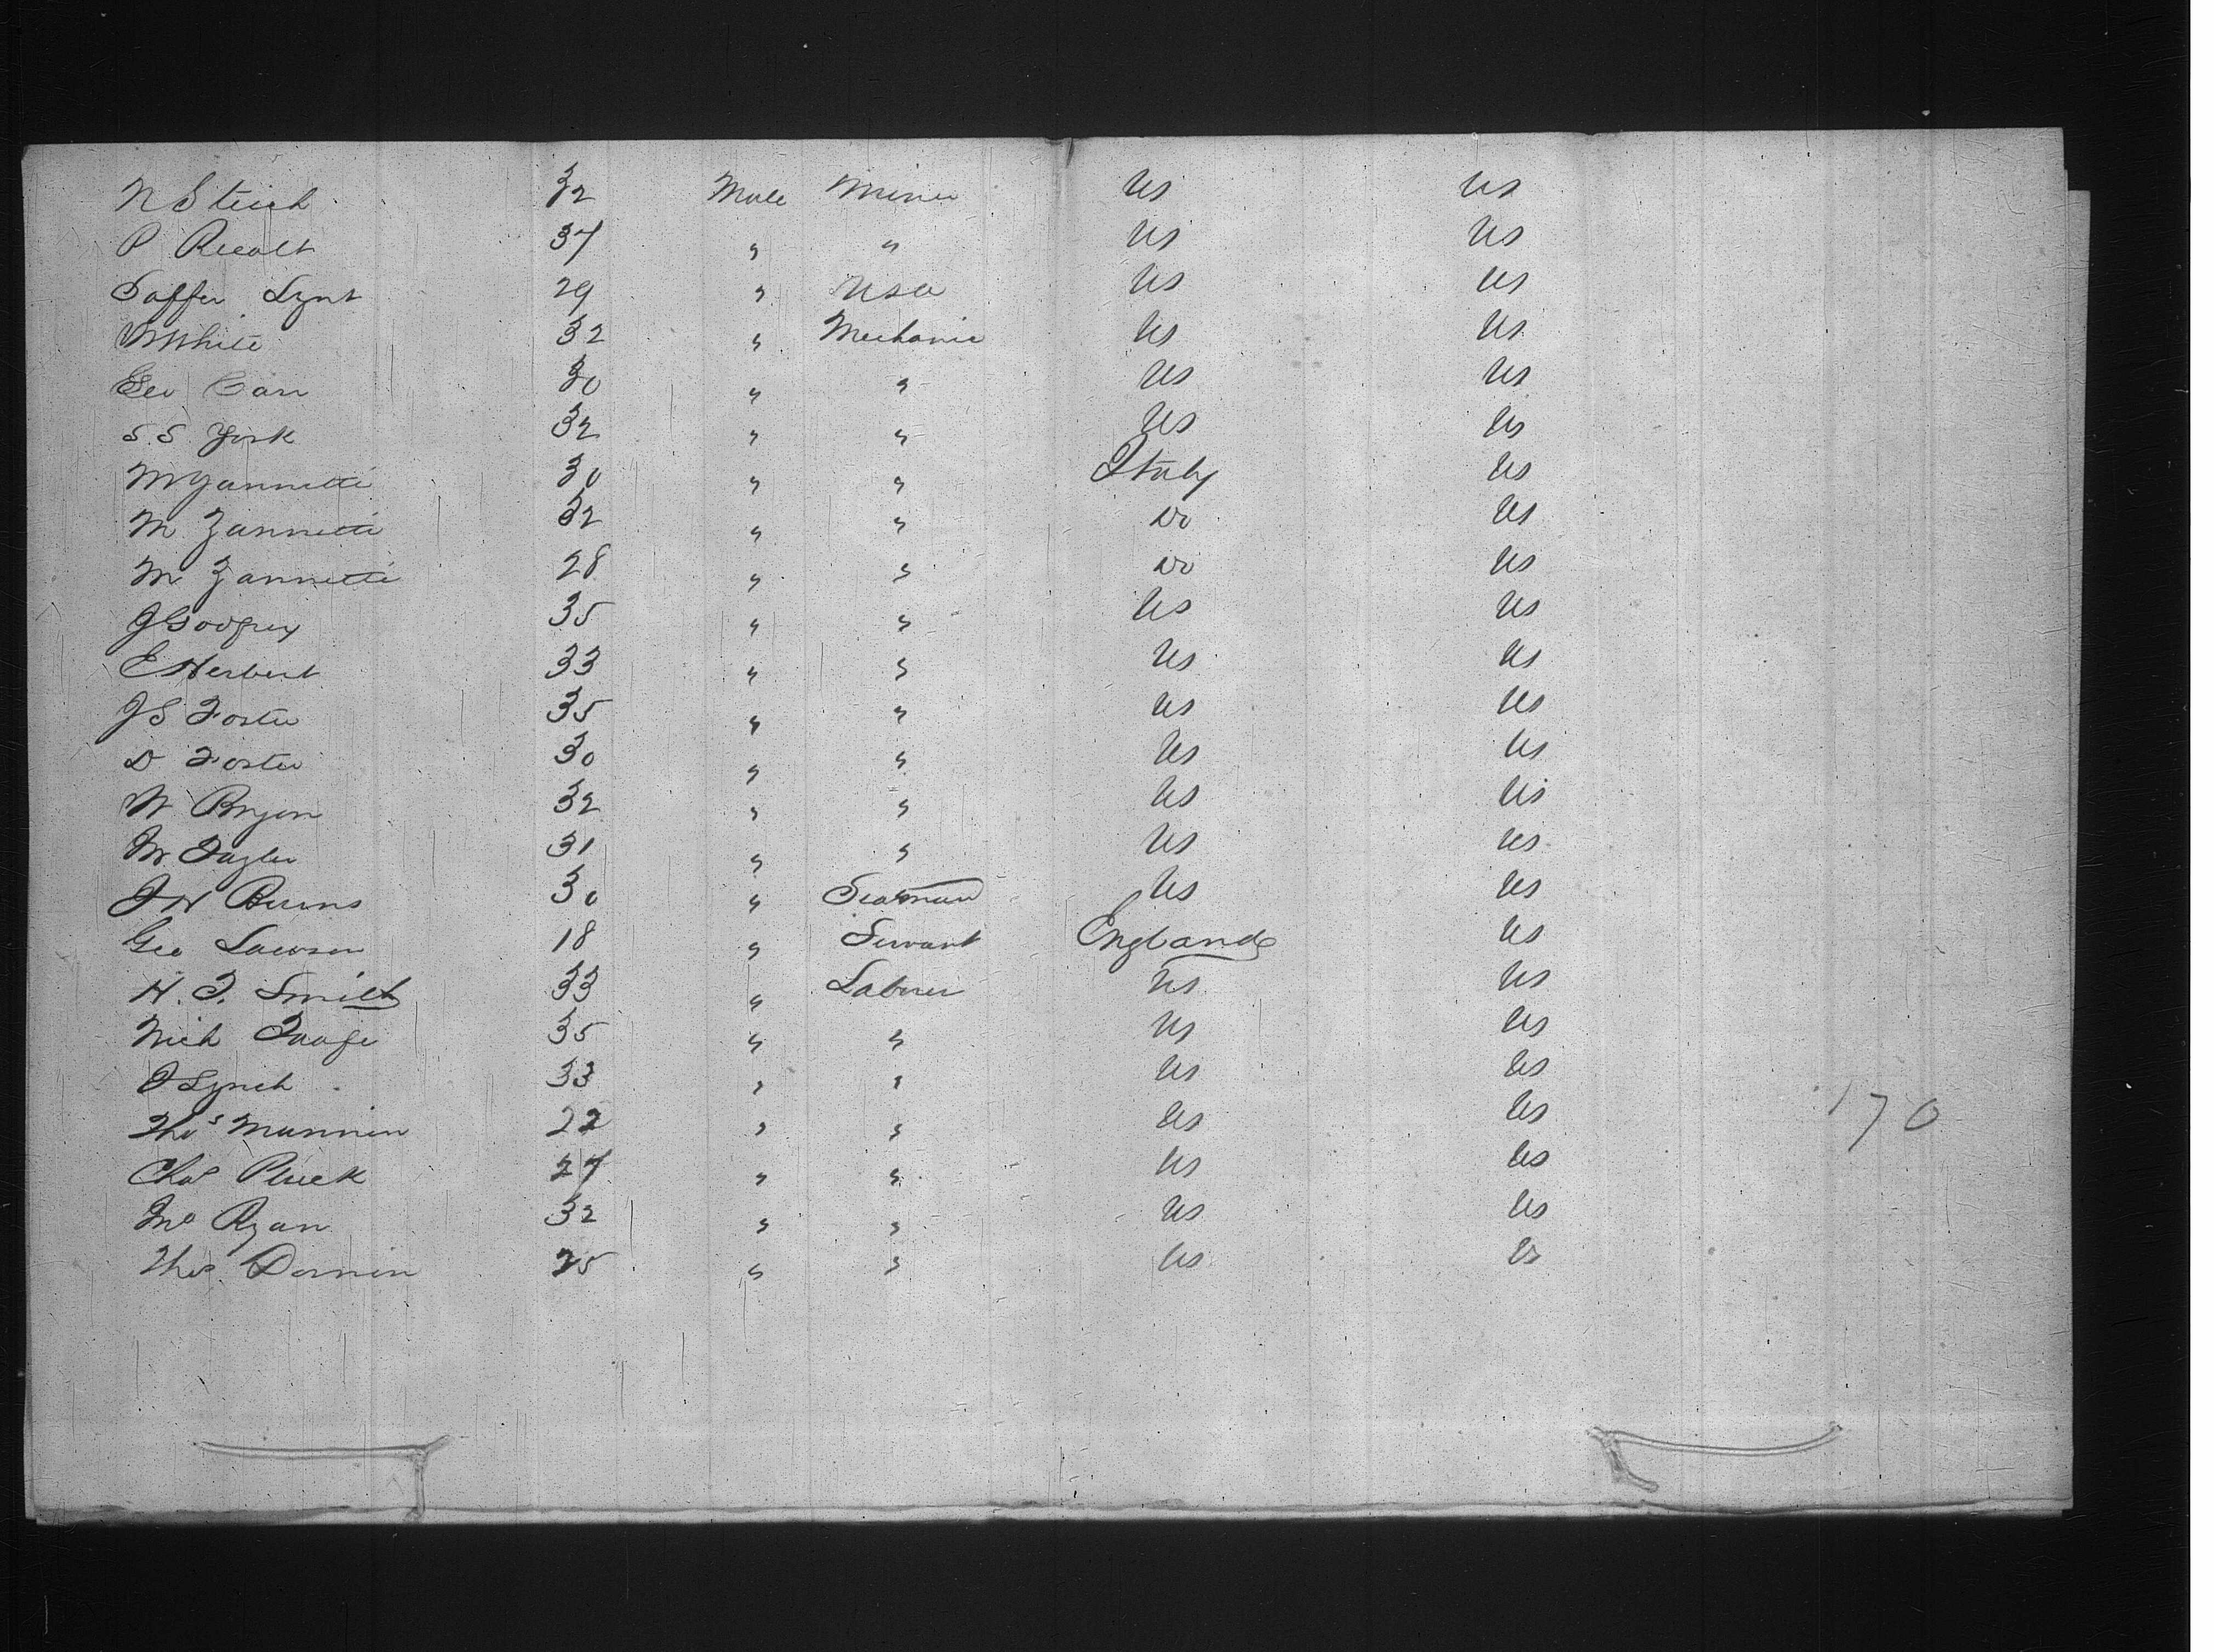 N Steich 32 Male Miner US US
P Recolt 37 " " US US
Saffer Lynt 29 " USA US US
W White 32 " Mechanic US US
Geo Carr 30 " " US US
S. S. York 32 " " US US
M Yannetti 30 " " Italy US
M Zannetti 32 " " Do US
M Zannetti 28 " " Do US
J Godfrey 35 " " US US
E Herbert 33 " " US US
J S Foster 35 " " US US
D Foster 30 " " US US
W Bryon 32 " " US US
31 " " US US
J H Burns 30 " Seaman US US
Geo Lawson 18 " Servant England US
H. T. Smith 33 " Laborer US US
Mich 35 " " US US
J Lynch 33 " " US US
Thos Mannin 22 " " US US
170
Chas Pluck 27 " " US US
Jno Ryan 32 " " US US
Thos Dornin 25 " " US US